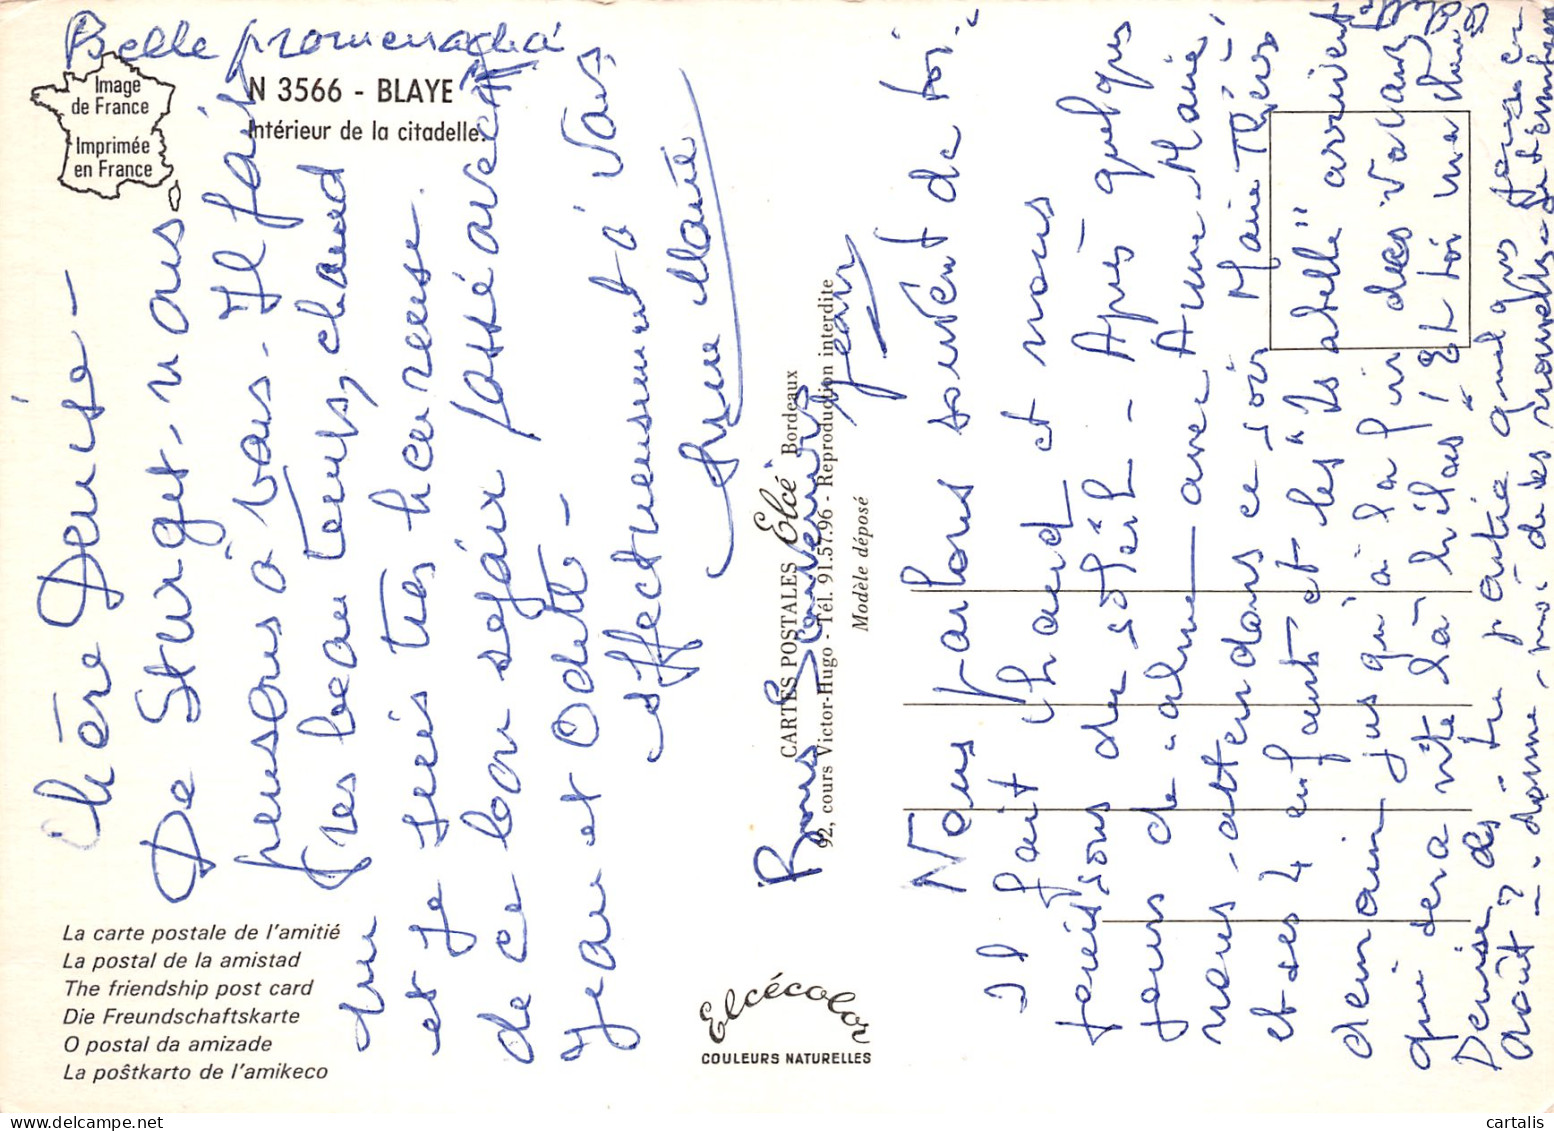 Belle promenade à
Image
de France
Imprimée
en France
N 3566 - BLAYE
Intérieur de la citadelle.
Chère Denise -
De St Surget, nous
pensons à vous. Il fait
très beau temps, chaud
et je suis très heureuse
de ce bon séjour passé avec
Jean et Odette -
Affectueusement à vous
Anne Marie
Bons Souvenirs
Jean
La carte postale de l'amitié
La postal de la amistad
The friendship post card
Die Freundschaftskarte
O postal da amizade
La poŝtkarto de l'amikeco
CARTES POSTALES Elcé Bordeaux
92, cours Victor-Hugo - Tél. 91.57.96 - Reproduction interdite
Modèle déposé
Elcécolor
COULEURS NATURELLES
Nous parlons souvent de toi.
Il fait chaud et nous
jouissons du soleil - Après quelques
jours de calme avec Anne Marie,
nous attendons ce soir Marie Thérèse
et ses 4 enfants et les "Isabelle" arrivent
demain jusqu'à la fin des vacances
qui sera vite là hélas ! Et toi ma chère
Denise, es-tu partie quelques jours en
août ? - donne-moi de tes nouvelles. Je t'embrasse
Odette
cartalis